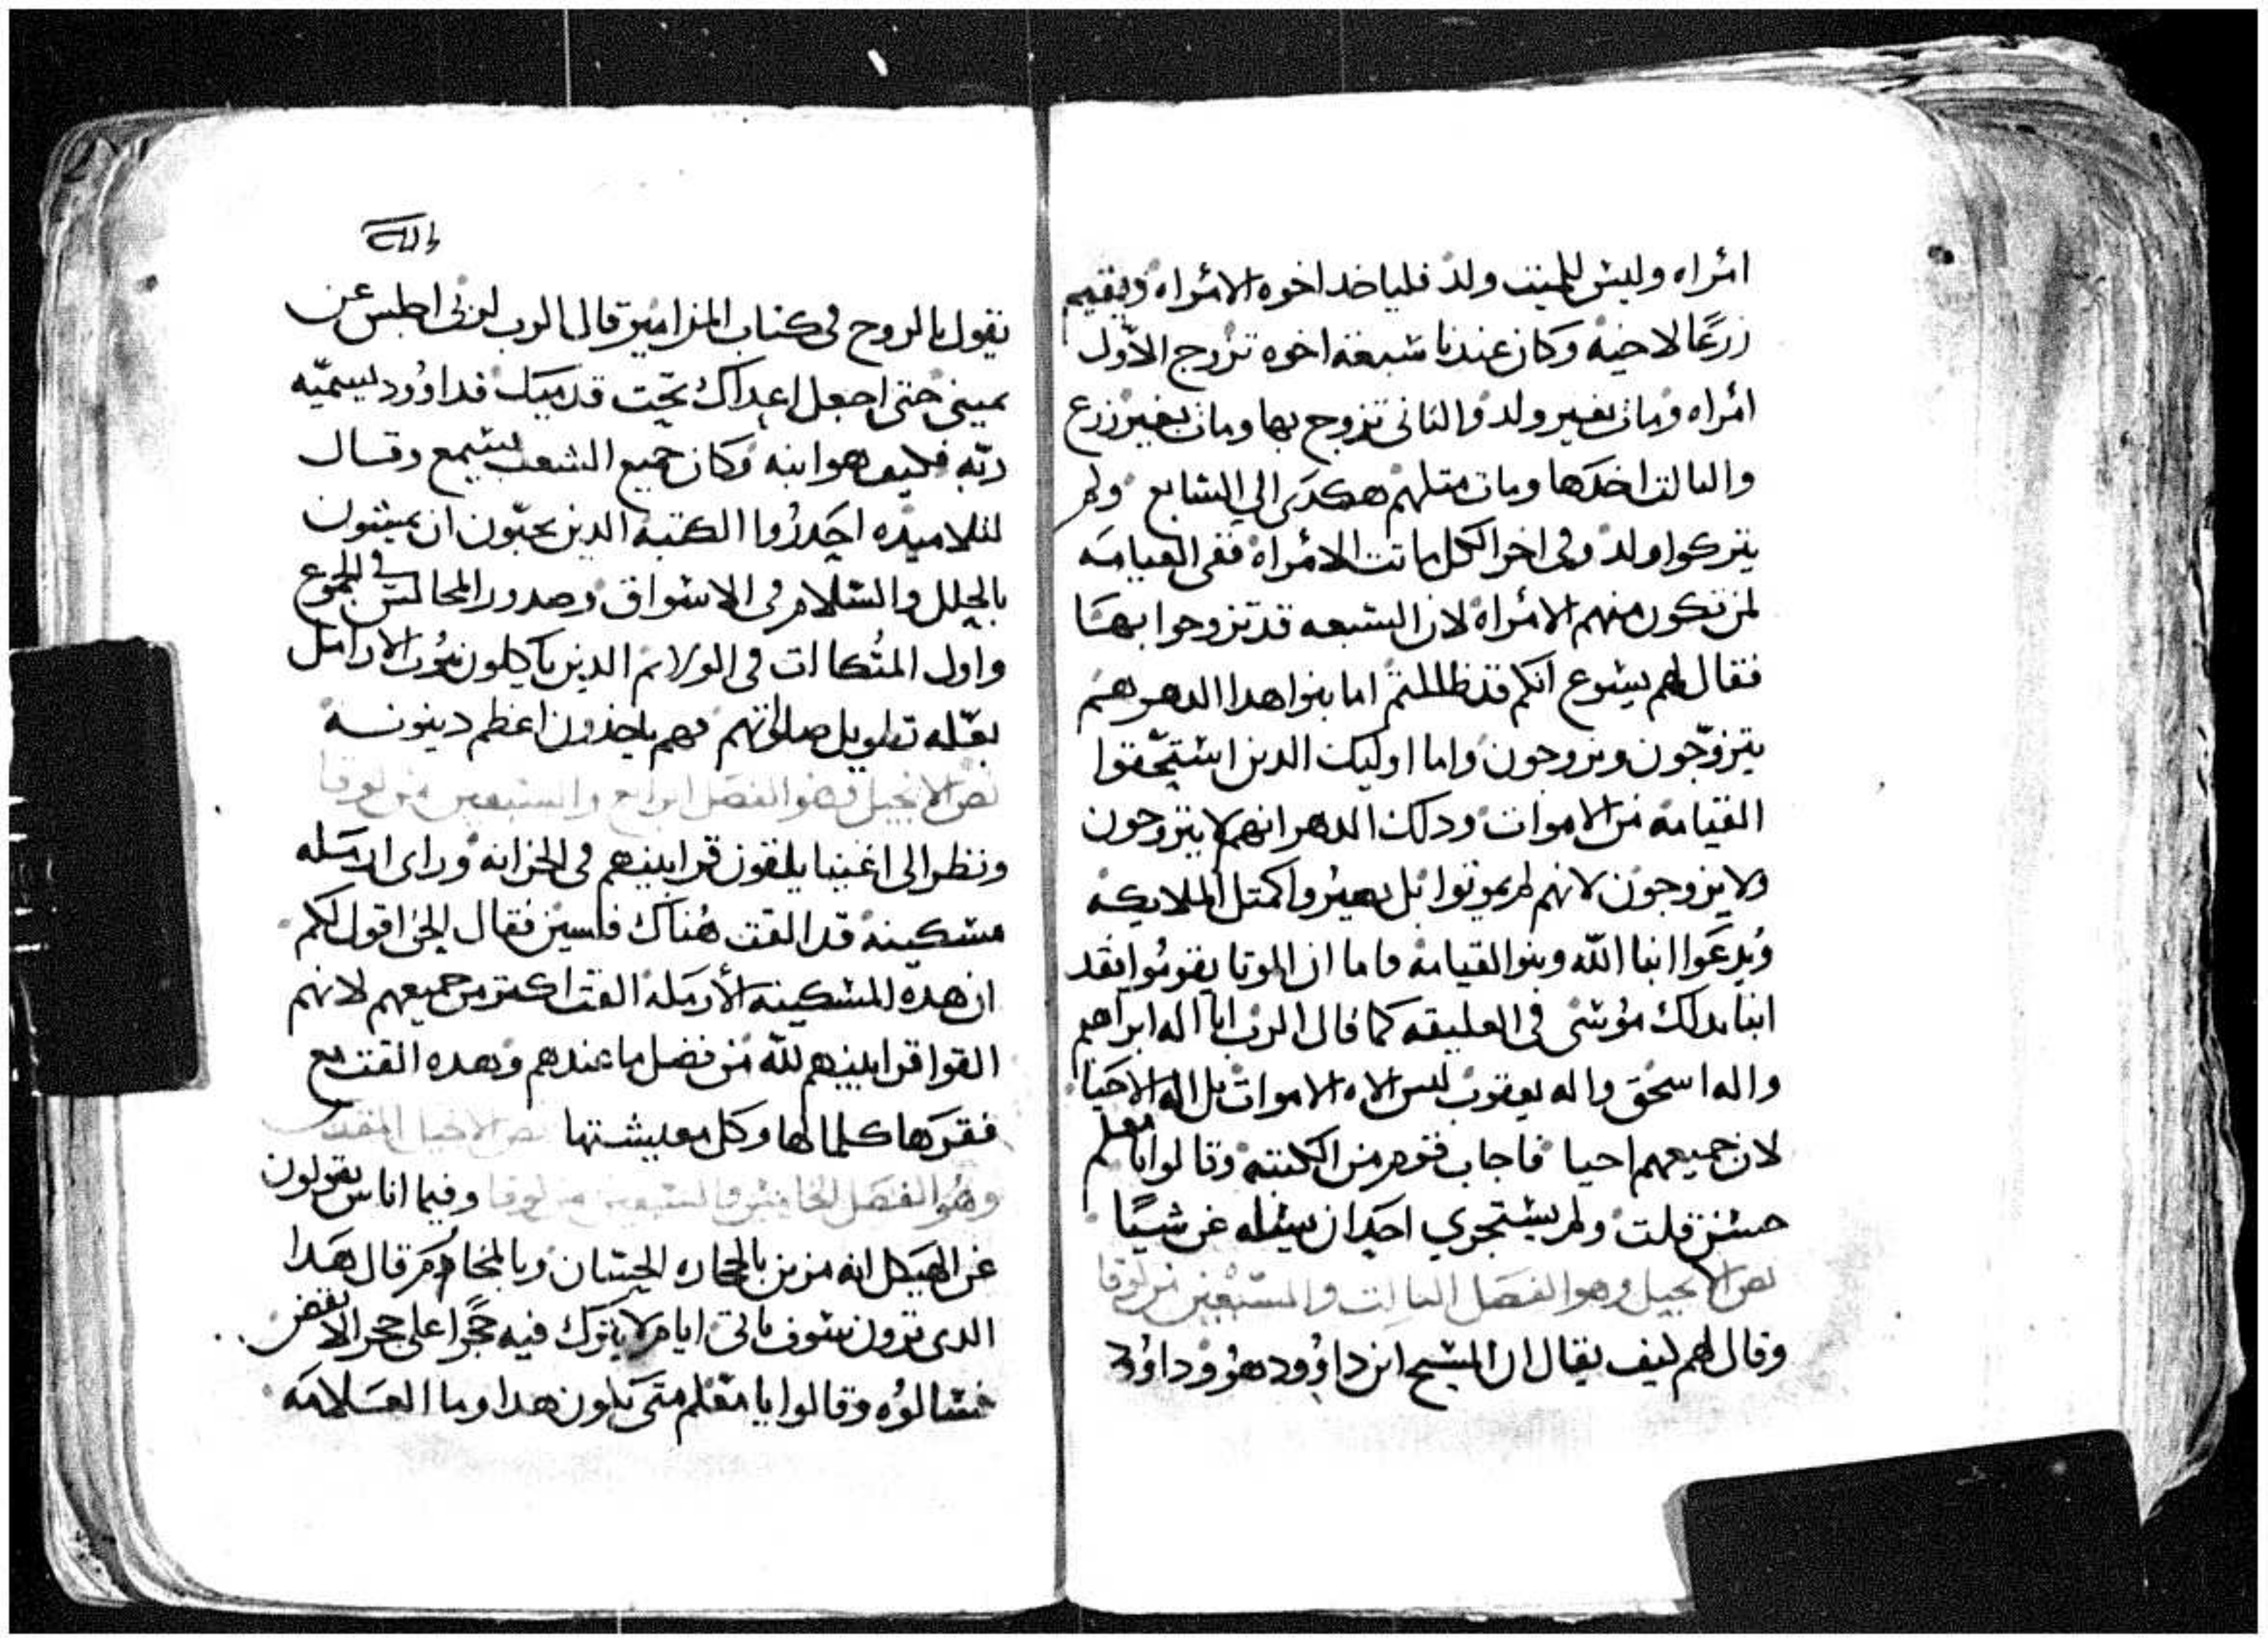 امراه وليس للميت ولد فلياخد اخوه الامراه ويقيم
زرعًا لاخيه وكان عندنا سبعة اخوه تزوج الاول
امراه ومات بغير ولد والتانى تزوج بها ومات بغير زرع
والتالت اخدها ومات متلهم هكدى الي السابع ولم
يتركوا ولد وفى اخر الكل ماتت الامراة ففى القيامه
لمن تكون منهم الامراة لان السبعه قد تزوجوا بها
فقال لهم يسوع انكم قد ظللتم اما بنوا هدا الدهر هم
يتزوّجون ويزوجون واما اوليك الدين استحقوا
القيامة من الاموات ودلك الدهر انهم لا يتزوجون
ولا يزوجون لانهم لم يموتوا بل يصيروا كمتل الملايكه
ويدعوا ابنا الله وبنو القيامة فاما ان الموتا يقوموا فقد
انبا بدلك موسى فى العليقه كما قال الرب انا اله ابراهيم
واله اسحق واله يعقوب ليس الاه الاموات بل اله الاحيا
لان جميعهم احيا فاجاب قوم من الكتبه وقالوا يا معلم
حسن قلت ولم يستجري احد ان يسله عن شيئًا
نص الانجيل وهو الفصل التالت والسبعين من لوقا
وقال لهم كيف يقال ان المسيح ابن داوود هو وداوود
يقول بالروح فى كتاب المزامير قال الرب لربى اجلس عن
يمينى حتى اجعل اعداك تحت قدميك فداوود يسميّه
ربّه فكيف هو ابنه وكان جميع الشعب يسمع وقال
لتلاميده احدروا الكتبه الدين يحبّون ان يمشون
بالحلل والسلام فى الاسواق وصدور المجالس فى الجموع
واول المتكاات فى الولايم الدين ياكلون بيوت الارامل
بعلّه تطويل صلواتهم فهم ياخدون اعظم دينونه
نص الانجيل وهو الفصل الرابع والسبعين من لوقا
ونظر الى اغنيا يلقون قرابينهم فى الخزانه وراى ارمله
مسكينة قد القت هناك فلسين فقال الحق اقول لكم
ان هده المسكينة الأرملة القت اكتر من جميعهم لانهم
القوا قرابينهم لله من فضل ما عندهم وهده القت مع
فقرها كلما لها وكل معيشتها نص الانجيل المقدس
وهو الفصل الخامس والسبعين من لوقا وفيما اناس يقولون
عن الهيكل انه مزين بالحجاره الحسان وبالمحارم قال هدا
الدى ترون سوف ياتى ايام لا يترك فيه حجرا على حجر الا نقض
فسالوه وقالوا يا معلم متى يكون هدا وما العلامه